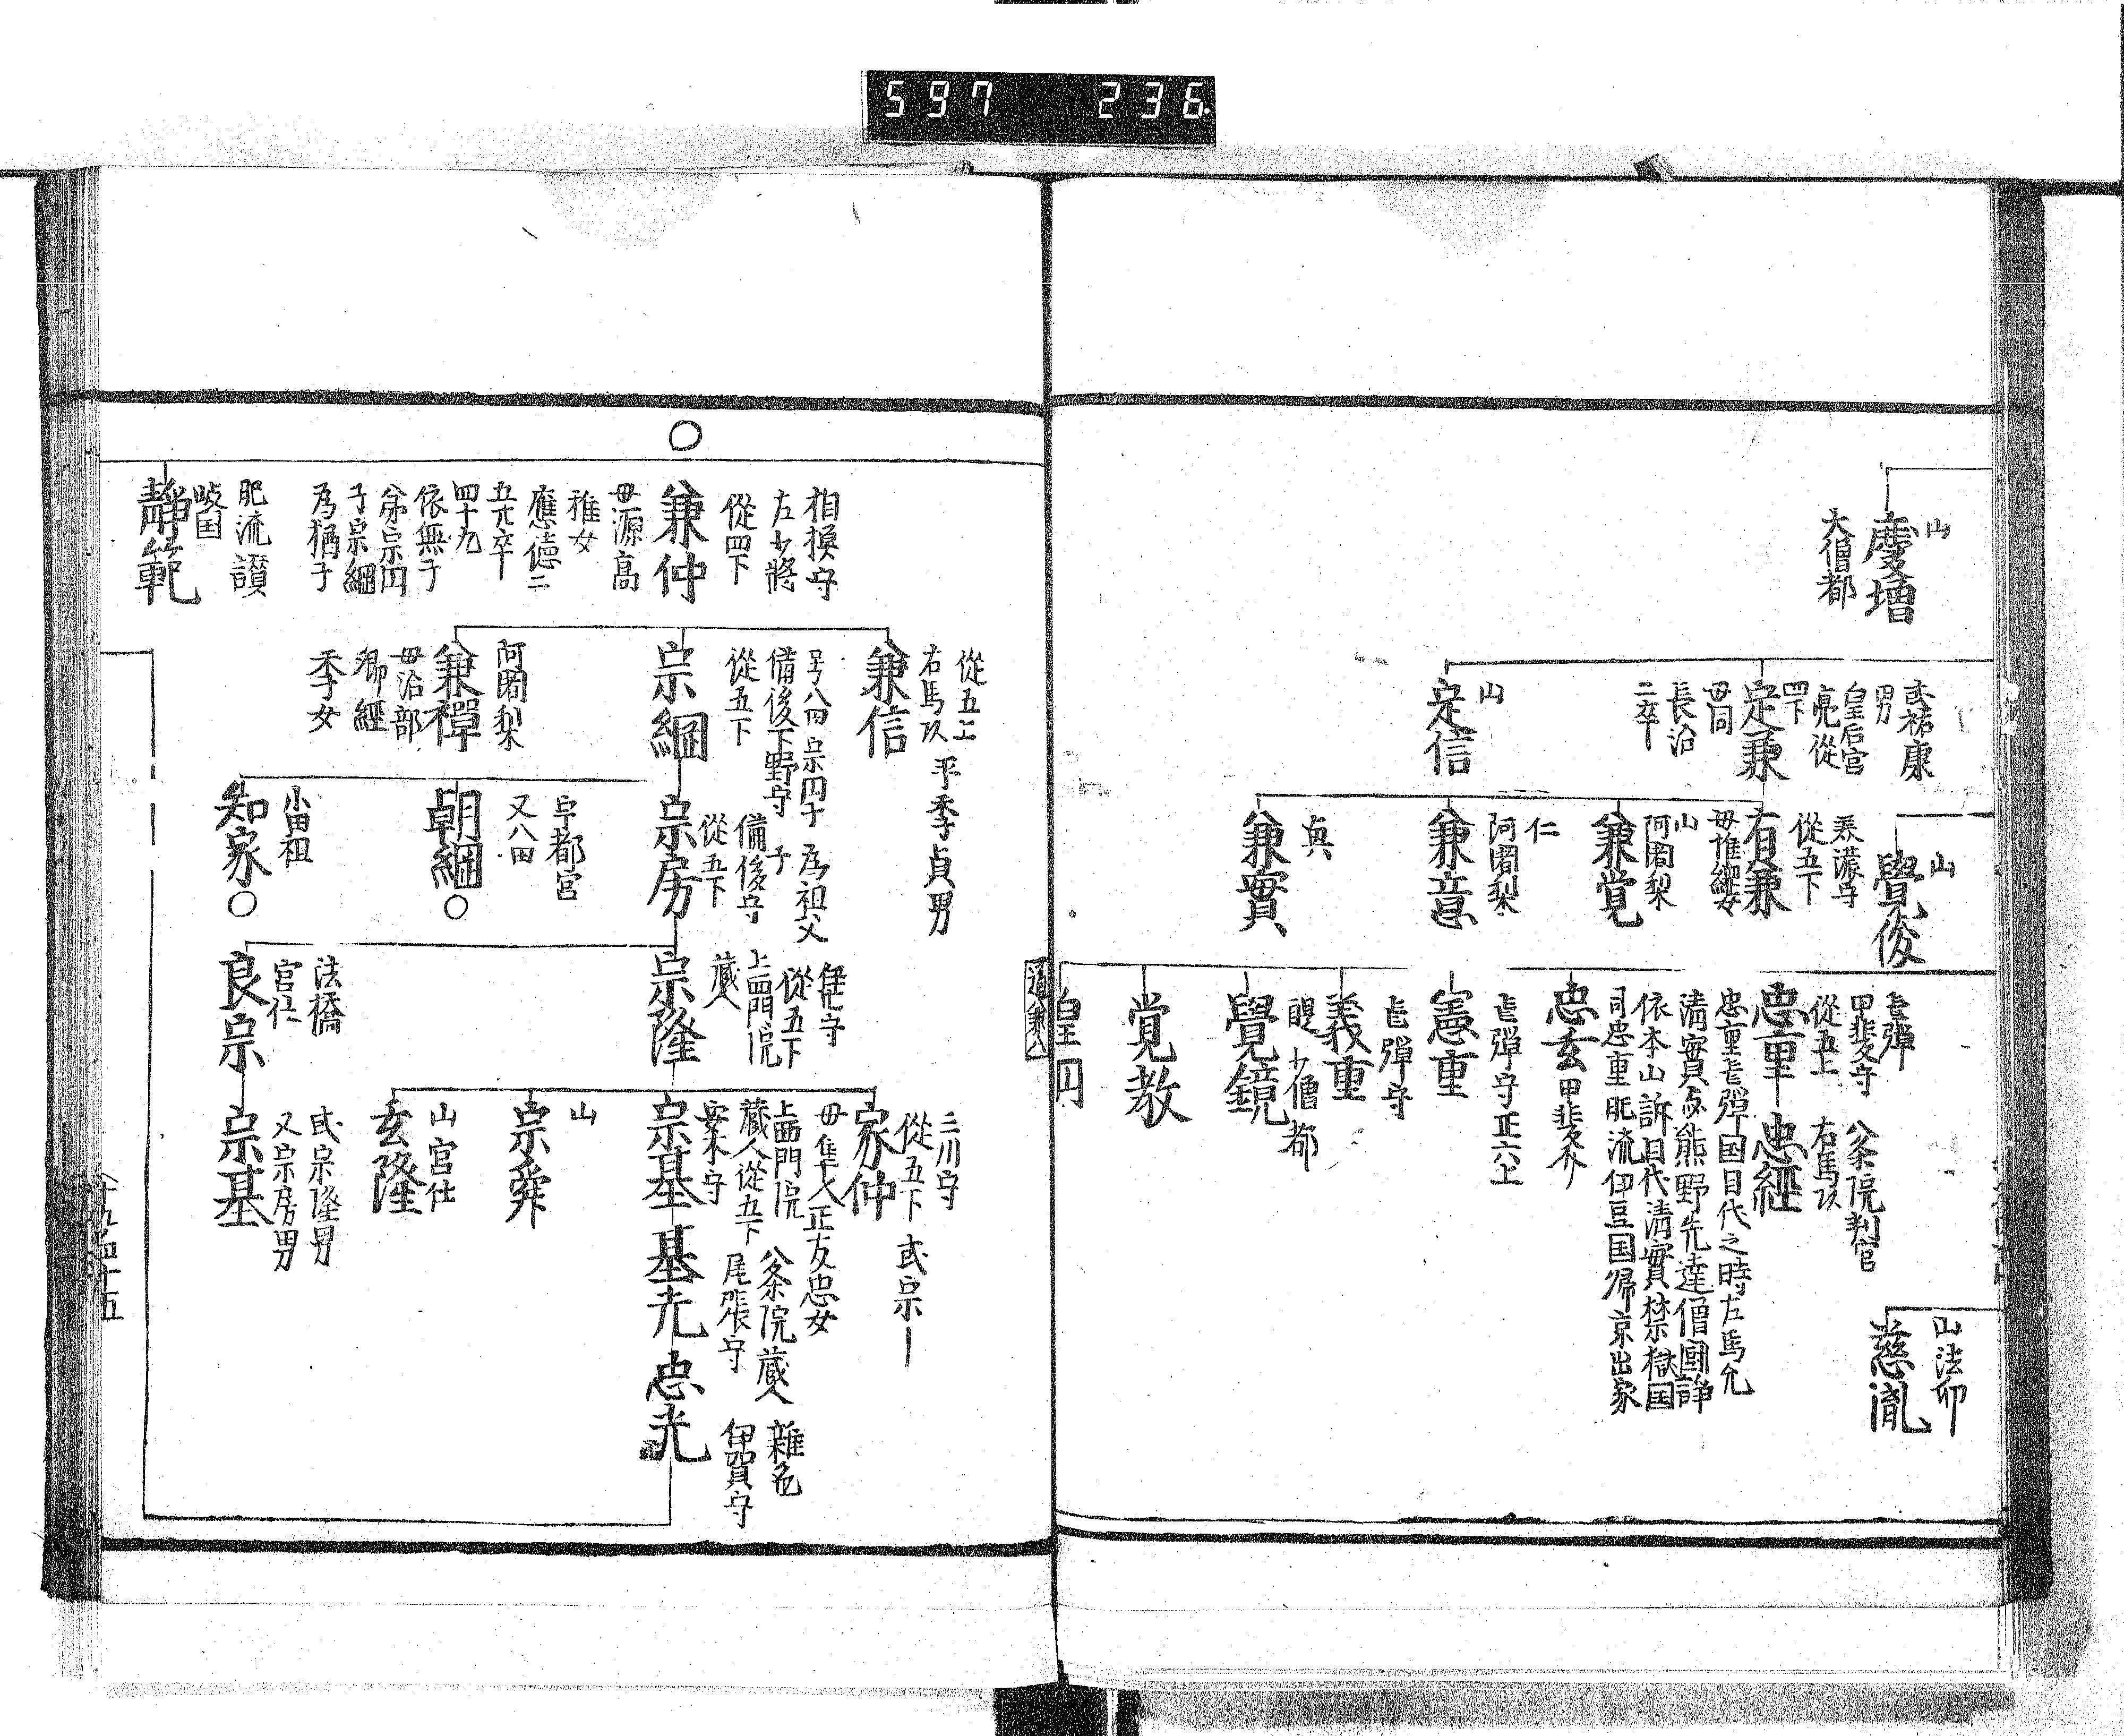 597 236
山
慶增
大僧都
山
覺俊
山法印
慈胤
或祐康
男
皇后宮
亮從
四下
定兼
母同
長治
二卒
山
定信
美濃守
從五下
有兼
母惟經女
山
阿闍梨
兼覚
仁
阿闍梨
兼意
真
兼實
甲斐守
從五上
忠重
八条院判官
右馬
忠經
忠重 彈国目代之時左馬允
清實与熊野先達僧闘諍
依本山訴目代清實禁獄国
司忠重配流伊豆国帰京出家
忠玄
甲斐介
彈守正六上
憲重
彈守
義重
醍 少僧都
覺鏡
覚教
皇円
道兼八
相摸守
左少將
從四下
兼仲
母源高
雅女
應德二
五十卒
四十九
依無子
弟宗円
子宗綱
為猶子
配流讃
岐国
靜範
從五上
右馬
平季貞男
兼信
号八田 宗円子 為祖父子
備後下野守
從五下
宗綱
阿闍梨
兼禪
母治部
卿經
季女
備後守
從五下
宗房
宇都宮
又八田
朝綱
小田祖
知家
隼人 守
從五下
上西門院
蔵人
宗隆
法橋
宮仕
良宗
三川守
從五下 或宗
家仲
母隼人正友忠女
上西門院
蔵人從五下
安木守
宗基
八条院蔵人
尾張守
基光
雜色
伊賀守
忠光
山
宗舜
山宮仕
玄隆
或宗隆男
又宗房男
宗基